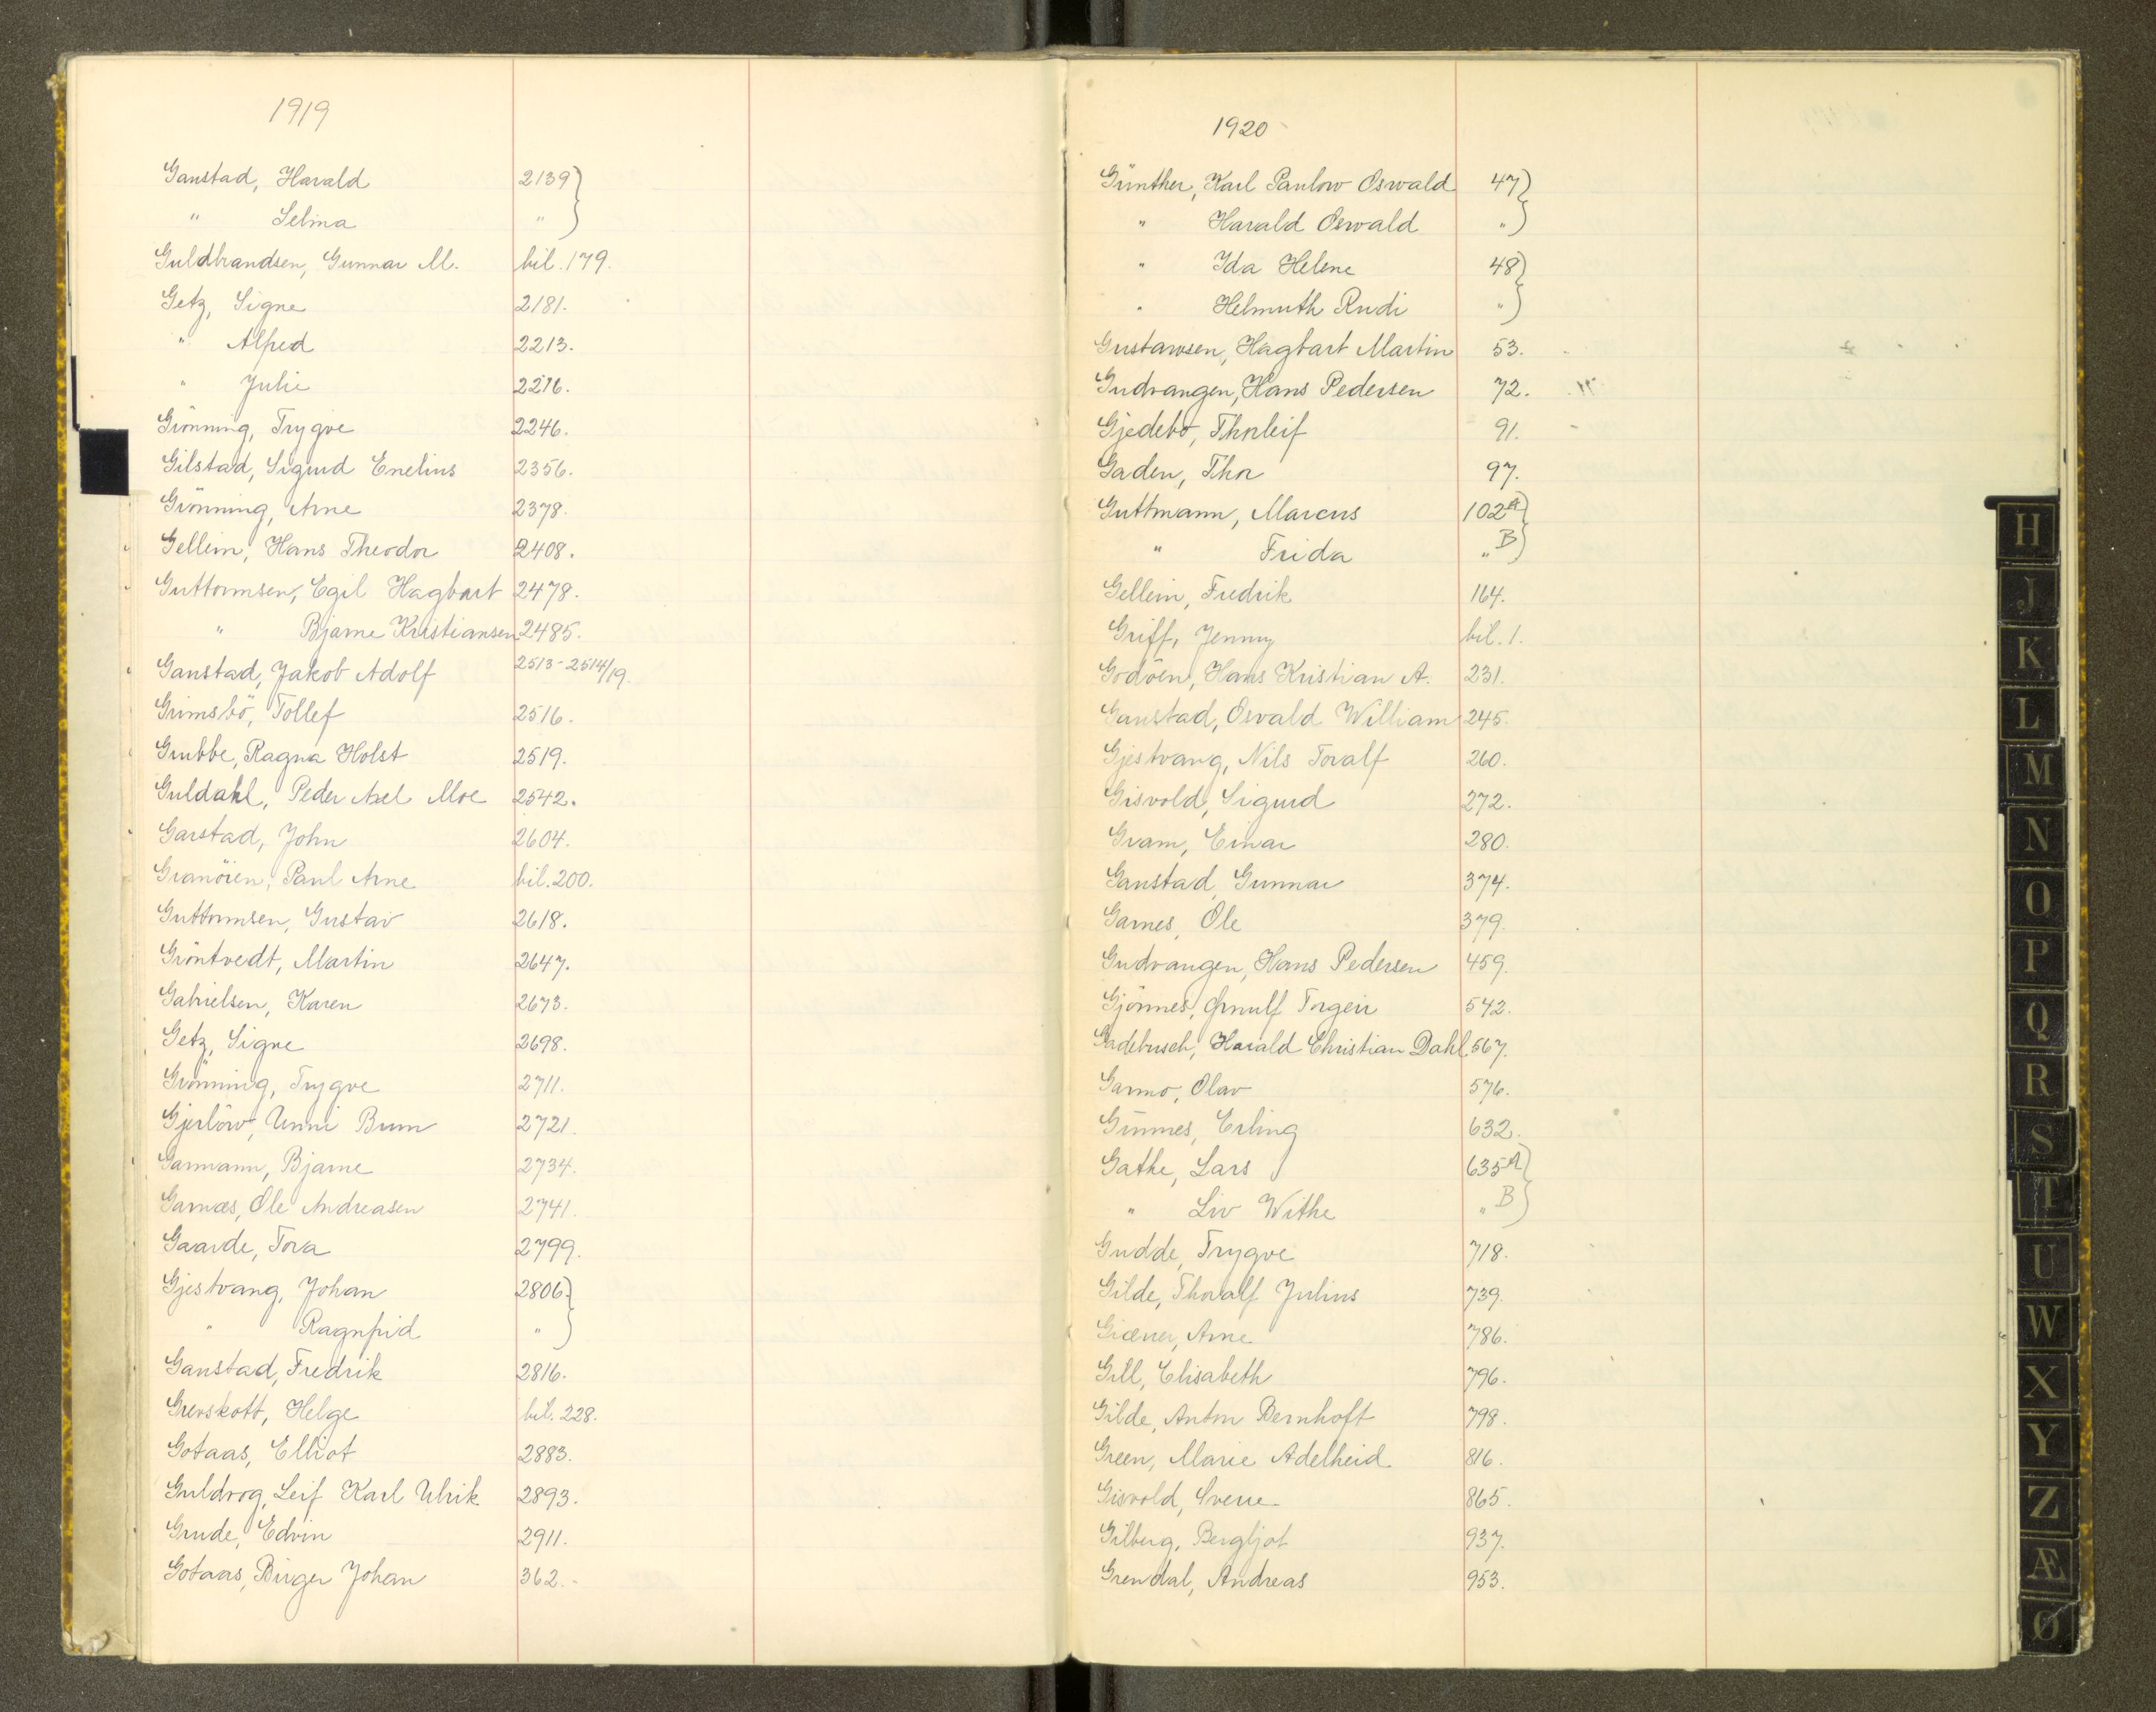 1919
Ganstad, Harald 2139
" Selma "
Guldbrandsen, Gunnar M. bil. 179.
Getz, Signe 2181.
" Alfred 2213.
" Julie 2216.
Grönning, Trygve 2246.
Gilstad, Sigurd Enelius 2356.
Grönning, Arne 2378.
Gellein, Hans Theodor 2408.
Guttormsen, Egil Hagbart 2478.
" Bjarne Kristiansen 2485.
Ganstad, Jakob Adolf 2513-2514/19.
Grimsbö, Tollef 2516.
Grubbe, Ragna Holst 2519.
Guldahl, Peder Axel Moe 2542.
Garstad, John 2604.
Granöien, Paul Arne bil. 200.
Guttormsen, Gustav 2618.
Gröntvedt, Martin 2647.
Gabrielsen, Karen 2673.
Getz, Signe 2698.
Grönning, Trygve 2711.
Gjerlöw, Unni Brun 2721.
Garmann, Bjarne 2734.
Garnæs, Ole Andreasen 2741.
Gaarde, Tora 2799.
Gjestvang, Johan 2806.
" Ragnfrid "
Ganstad, Fredrik 2816.
Grevskott, Helge bil. 228.
Gotaas, Elliot 2883.
Guldvog, Leif Karl Ulrik 2893.
Grude, Edvin 2911.
Gotaas, Birger Johan 362.
1920
Günther, Karl Paulow Oswald 47
" Harald Oswald "
" Ida Helene 48
" Helmuth Rudi "
Gustavsen, Hagbart Martin 53.
Gudvangen, Hans Pedersen 72.
Gjedebo, Thorleif 91.
Gaden, Thor 97.
Guttmann, Marcus 102 A
" Frida " B
Gellein, Fredrik 164.
Griff, Jenny bil. 1.
Godöen, Hans Kristian A. 231.
Ganstad, Osvald William 245.
Gjestvang, Nils Toralf 260.
Gisvold, Sigurd 272.
Gram, Einar 280.
Ganstad, Gunnar 374.
Garnes, Ole 379.
Gudvangen, Hans Pedersen 459.
Gjönnes, Ørnulf Torgeir 542.
Gadebusch, Harald Christian Dahl 567.
Garmo, Olav 576.
Erling 632.
Gathe, Lars 635 A
" Liv Withe " B
Gudde, Trygve 718.
Gilde, Thoralf Julius 739.
Giæver, Arne 786.
Gill, Elisabeth 796.
Gilde, Anton Bernhoft 798.
Green, Marie Adelheid 816.
Gisvold, Sverre 865.
Gilberg, Bergljot 937.
Grendal, Andreas 953.
H
J
K
L
M
N
O
P
Q
R
S
T
U
W
X
Y
Z
Æ
Ø